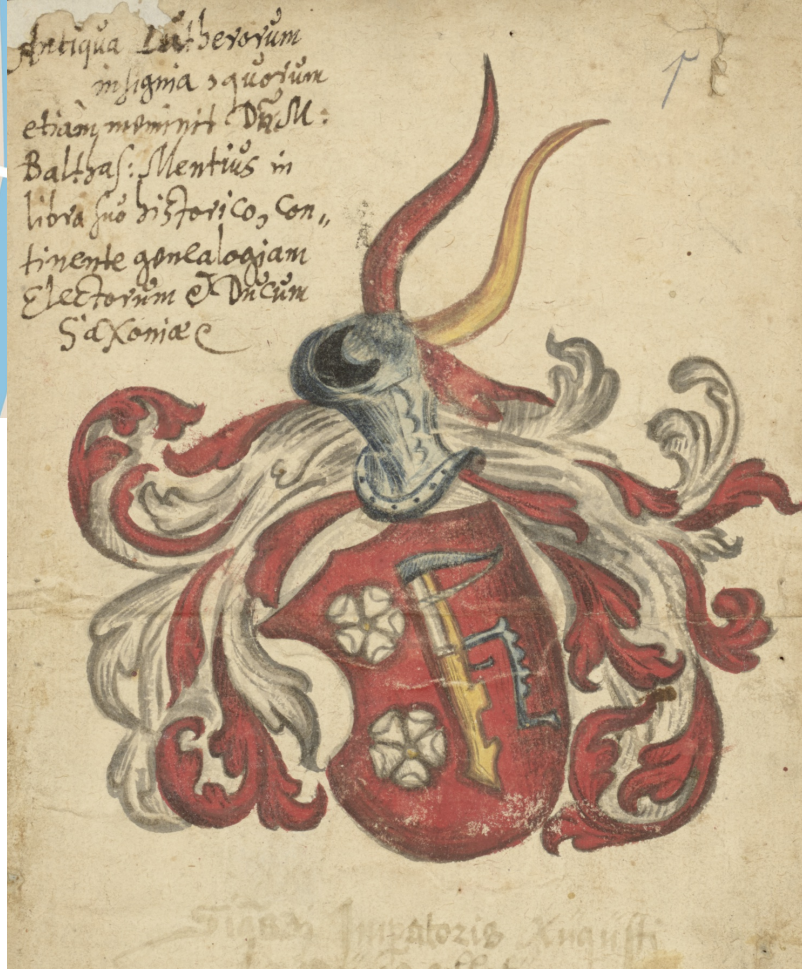 Antiqua Lutherorum
insignia, quorum
etiam meminit Dn̄ M:
Balthas: Mentius in
libro suo historico, con„
tinente genealogiam
Electorum & Ducum
Saxoniæ
1
Imperatoris Augusti